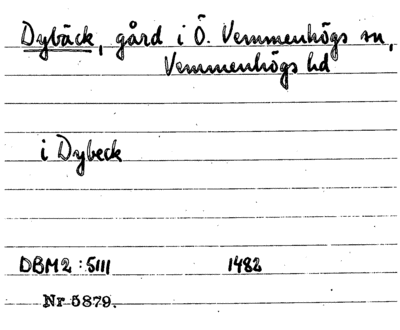 Dybäck, gård i Ö. Vemmenhögs sn,
Vemmenhögs hd
i Dybeck
DBM2:5111 1482
Nr 5879.